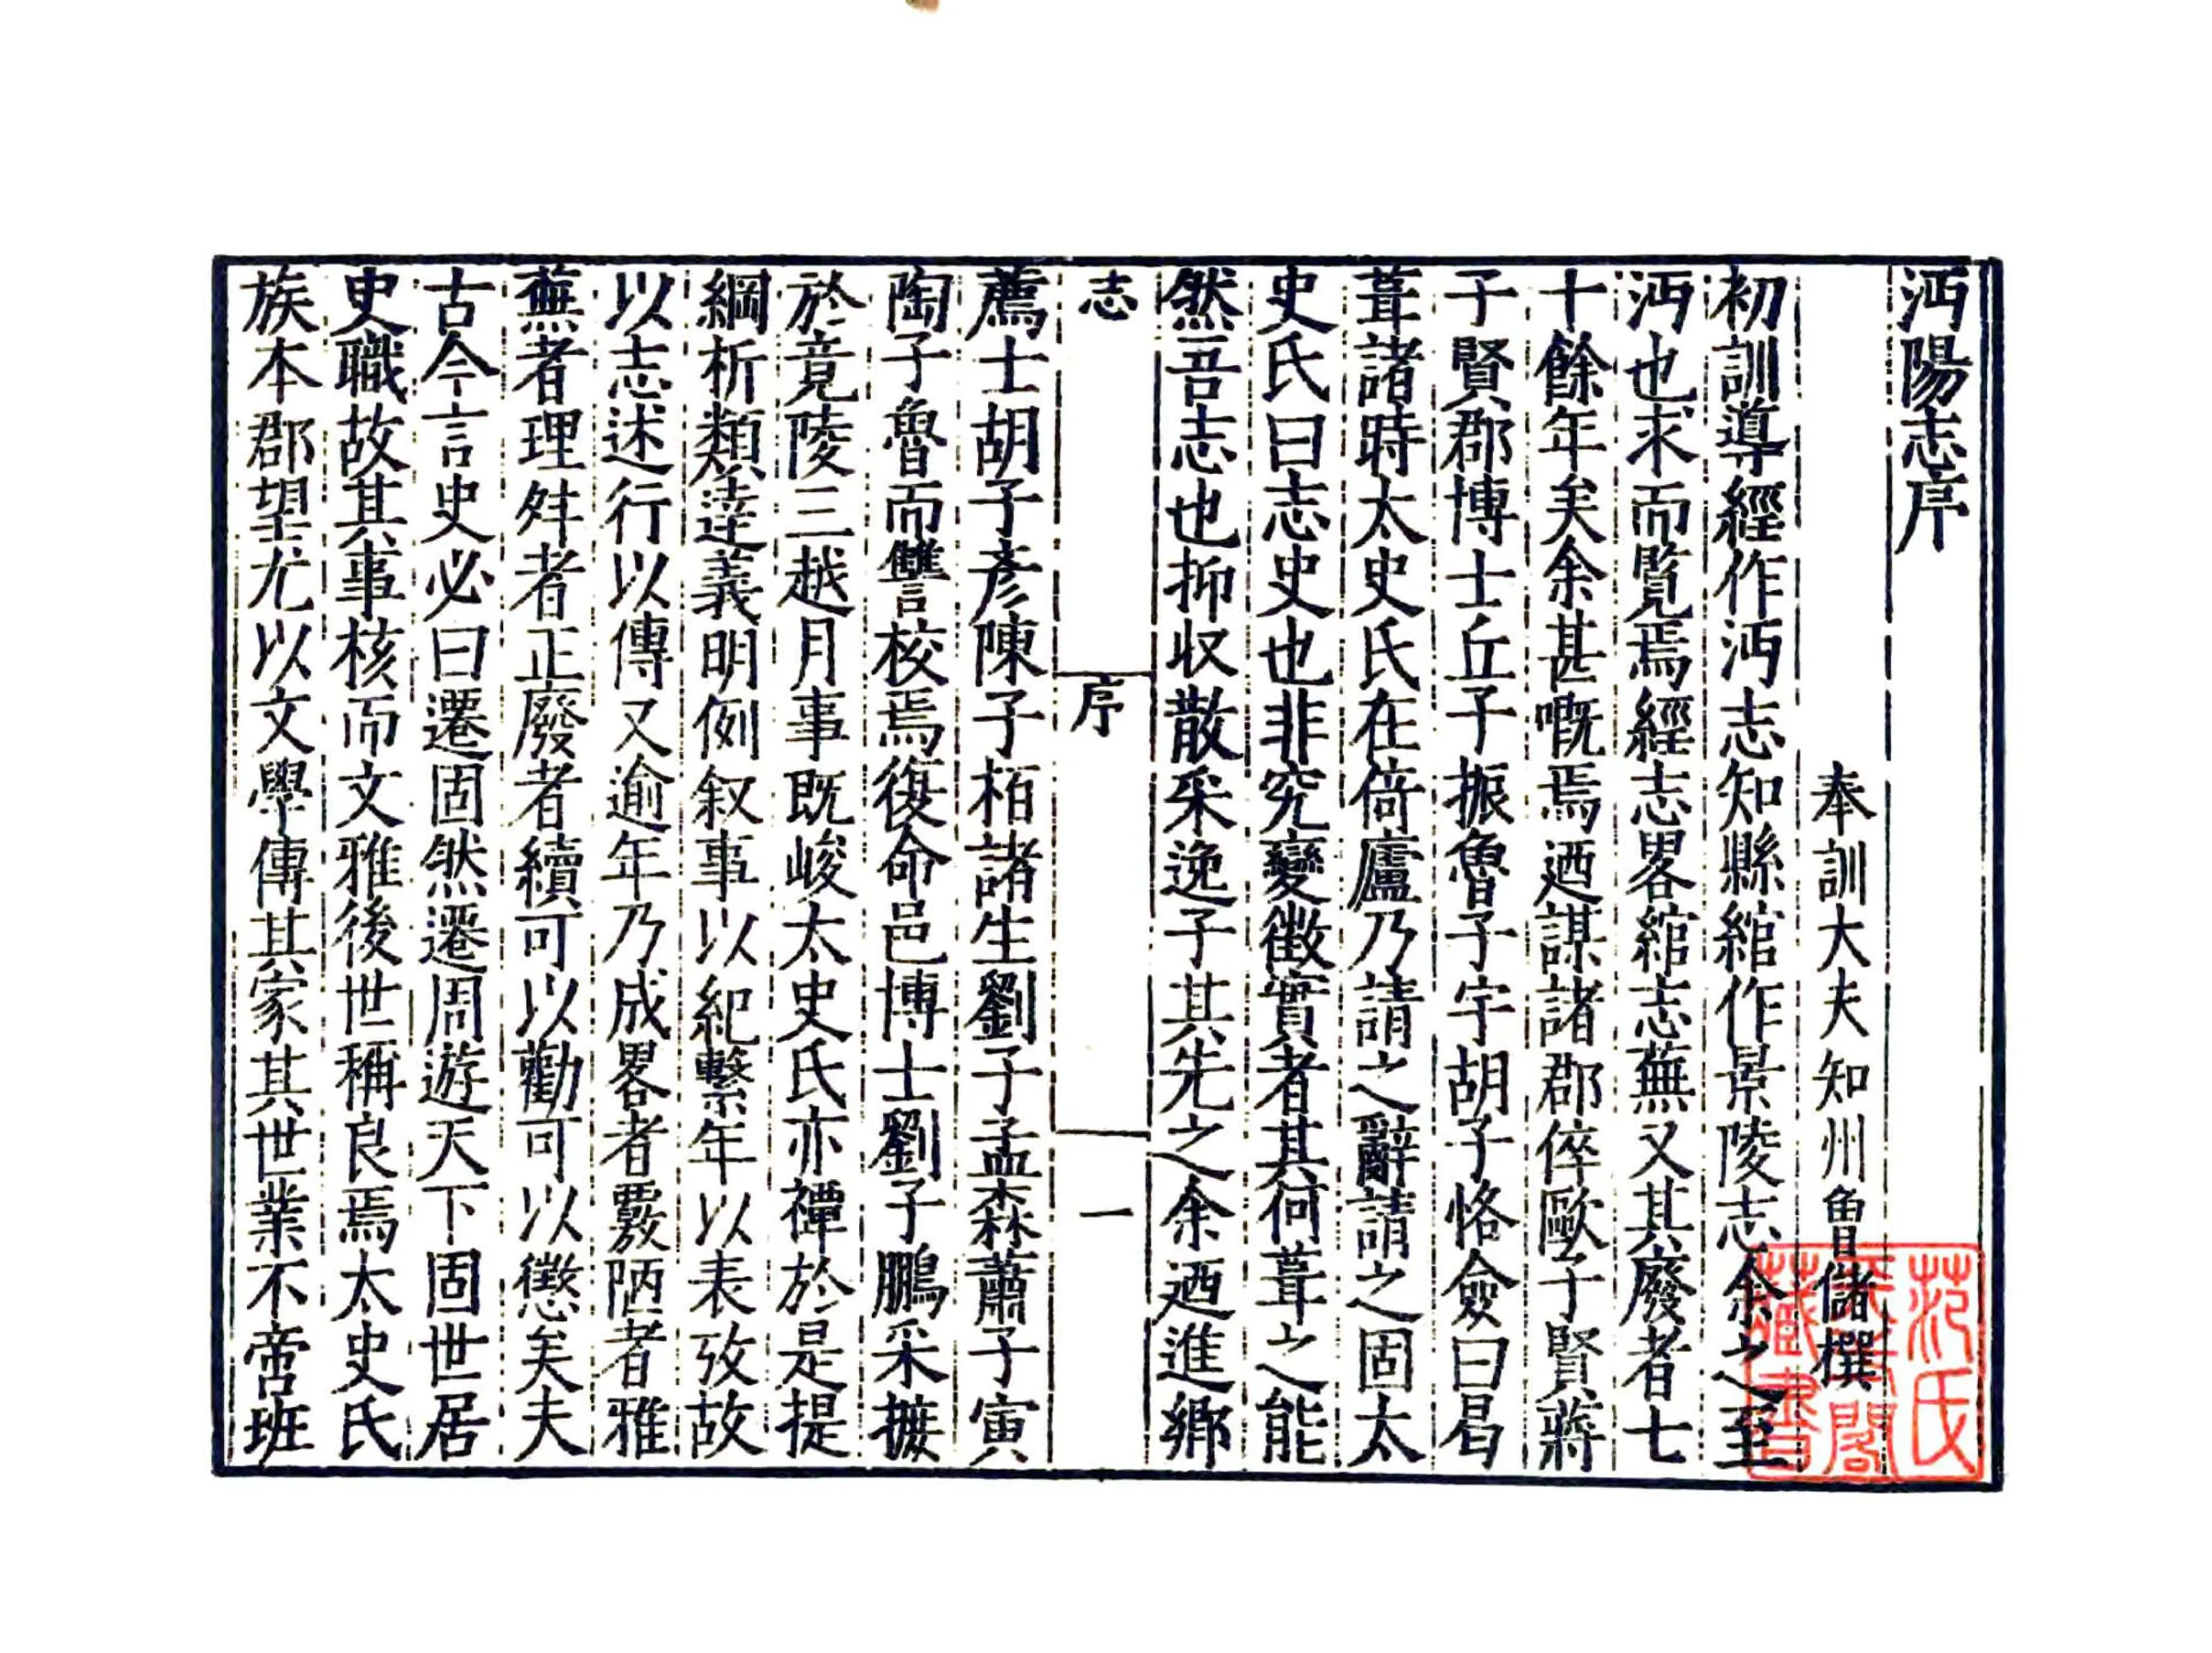 沔陽志序
奉訓大夫知州魯儲撰
初訓導經作沔志知縣綰作景陵志余之至
沔也求而覧焉經志畧綰志蕪又其廢者七
十餘年矣余甚嘅焉迺謀諸郡倅歐子賢蔣
子賢郡博士丘子振魯子宇胡子恪僉曰曷
葺諸時太史氏在倚廬乃請之辭請之固太
史氏曰志史也非究變徵實者其何葺之能
然吾志也抑収散采逸子其先之余迺進鄉
志
序
一
薦士胡子彥陳子栢諸生劉子孟森蕭子寅
陶子魯而讐校焉復命邑博士劉子鵬采摭
於竟陵三越月事既峻太史氏亦禫於是提
綱析類逹義明例叙事以紀繫年以表攷故
以志述行以傳又逾年乃成畧者覈陋者雅
蕪者理舛者正廢者續可以勸可以懲矣夫
古今言史必曰遷固然遷周遊天下固世居
史職故其事核而文雅後世稱良焉太史氏
族本郡望尤以文學傳其家其世業不啻班
范氏
天一閣
藏書